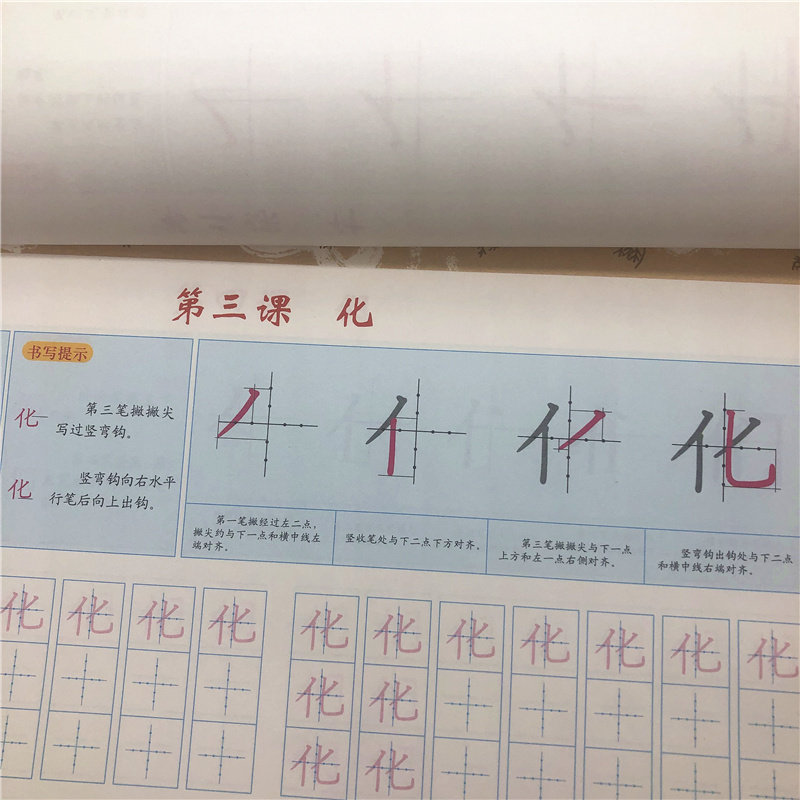 第三课 化
书写提示
化
第三笔撇撇尖
写过竖弯钩。
化
竖弯钩向右水平
行笔后向上出钩。
第一笔撇经过左二点,
撇尖约与下一点和横中线左
端对齐。
竖收笔处与下二点下方对齐。
第三笔撇撇尖与下一点
上方和左一点右侧对齐。
竖弯钩出钩处与下二点
和横中线右端对齐。
化 化 化 化 化 化 化 化 化 化 化
化 化
化 化